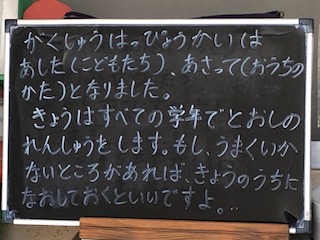 がくしゅうはっぴょうかいは
あした(こどもたち)、あさって(おうちの
かた)となりました。
きょうはすべての学年でとおしの
れんしゅうをします。もし、うまくいか
ないところがあれば、きょうのうちに
なおしておくといいですよ。